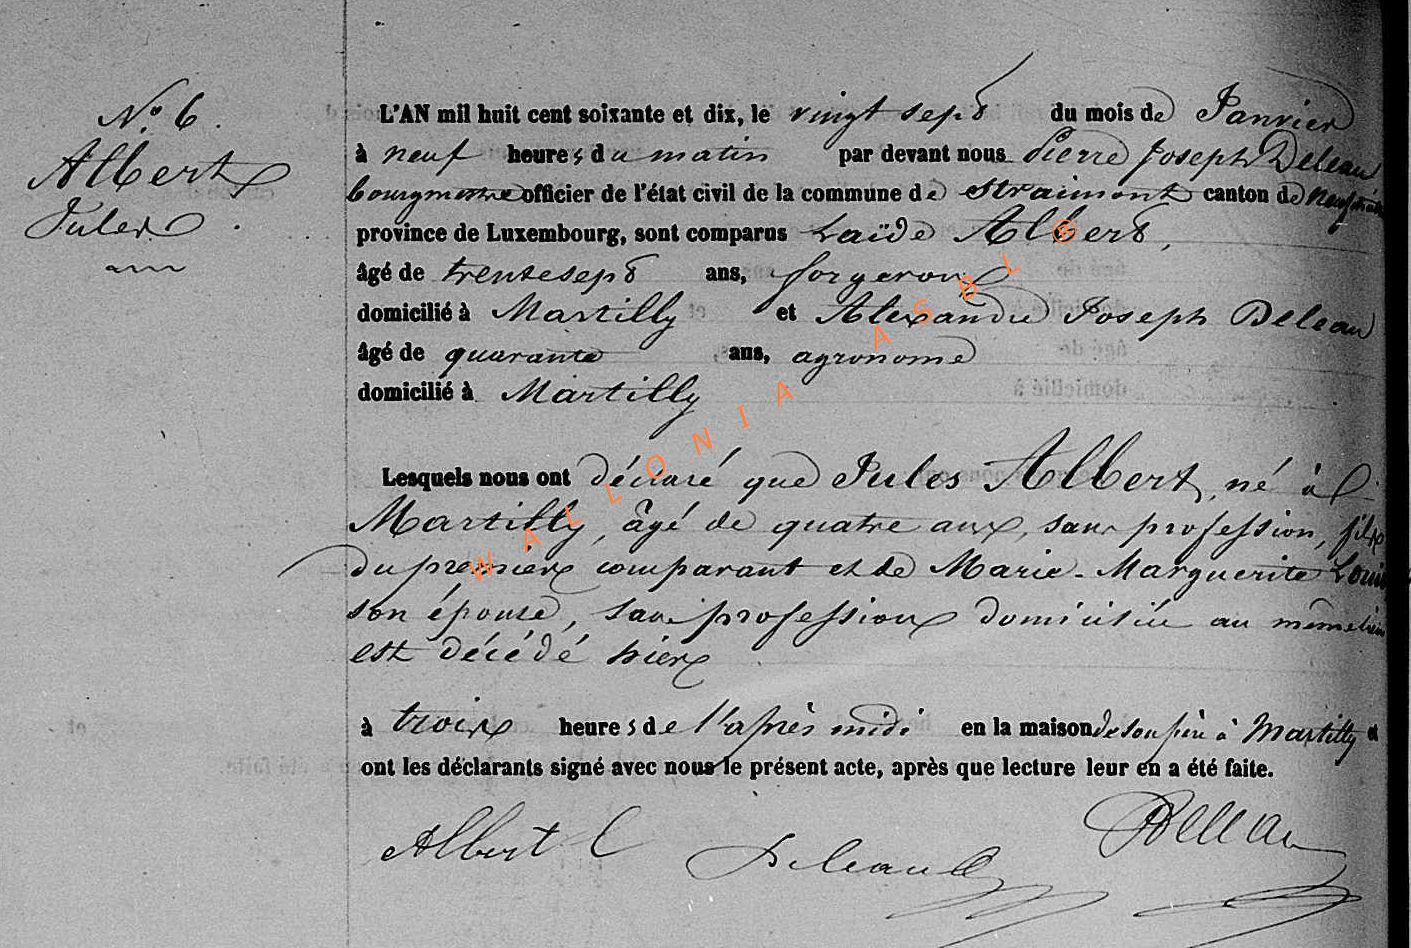 N° 6
Albert
Jules
L'AN mil huit cent soixante et dix, le vingt sept du mois de Janvier
à neuf heures du matin par devant nous Pierre Joseph Deleau
bourgmestre officier de l'état civil de la commune de Straimont canton de
province de Luxembourg, sont comparus Laïde Albert,
âgé de trente sept ans, forgeron
domicilié à Martilly et Alexandre Joseph Deleau
âgé de quarante ans, agronome
domicilié à Martilly
Lesquels nous ont déclaré que Jules Albert, né à
Martilly, âgé de quatre ans, sans profession, fils
du premier comparant et de Marie-Marguerite Louis
son épouse, sans profession domiciliée au même lieu
est décédé hier
à trois heures de l'après midi en la maison de son père à Martilly et
ont les déclarants signé avec nous le présent acte, après que lecture leur en a été faite.
Albert L Deleau Deleau
WALLONIA ASBL ©